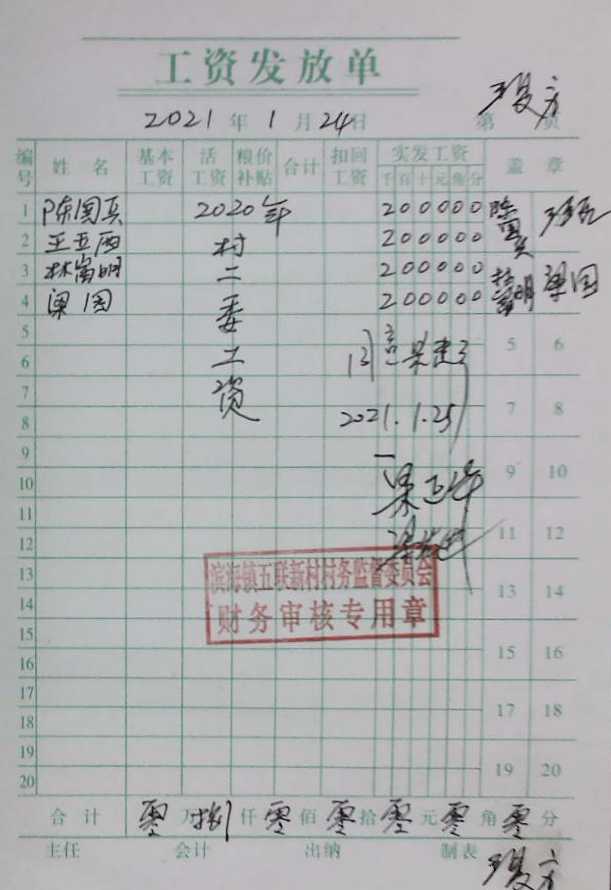 工资发放单
2021 年 1 月 24 日 第 页
编号 姓名 基本工资 活工资 粮价补贴 合计 扣回工资 实发工资 千百十元角分 盖章
1 陈国兵 2020年 200000
2 王亚西 村 200000
3 林富明 二 200000 林富明
4 梁国 委 200000 梁国
5 工 5 6
6 同意
7 资 7 8
8 2021.1.25
9
10 9 10
11
12 11 12
滨海镇五联新村村务监督委员会
13 13 14
财务审核专用章
14
15
16 15 16
17
18 17 18
19
20 19 20
合计 零 万 捌 仟 零 佰 零 拾 零 元 零 角 零 分
主任 会计 出纳 制表